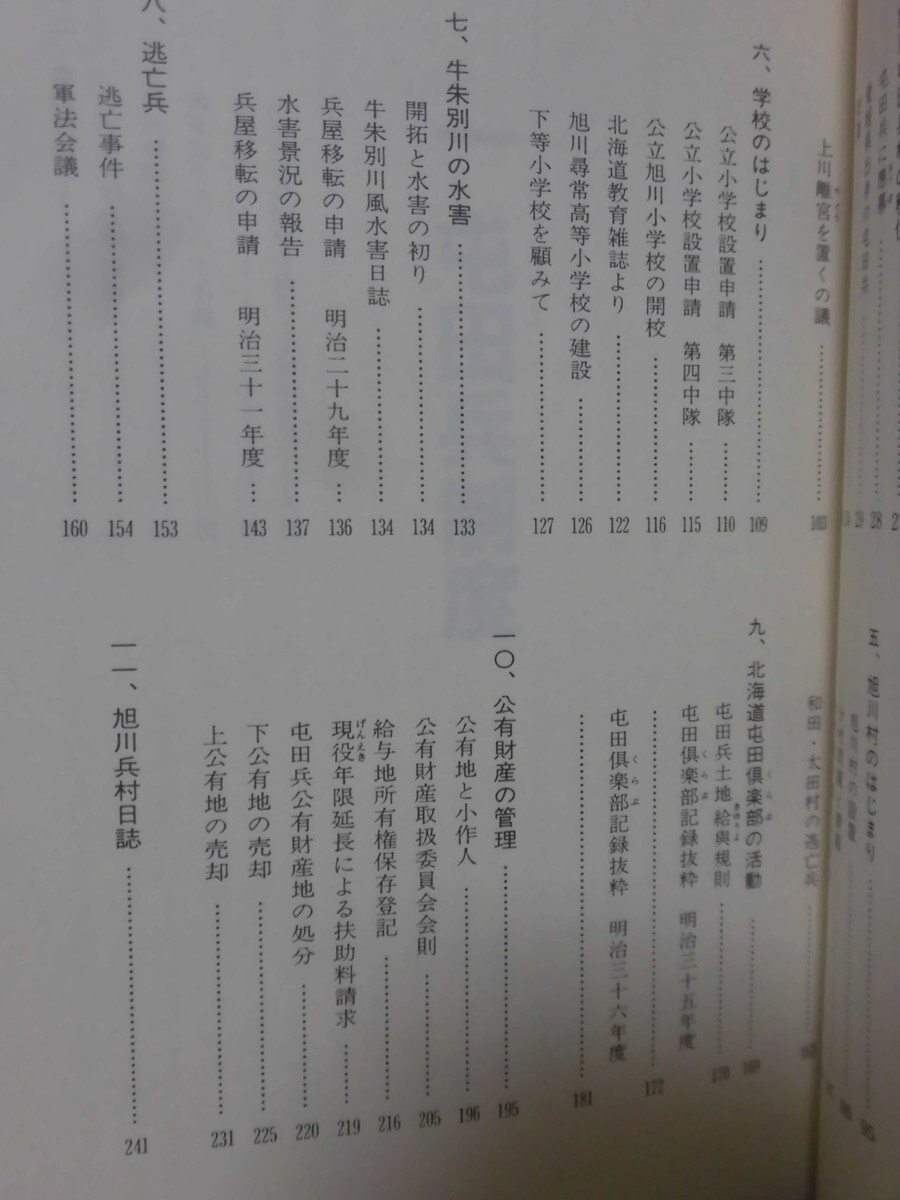 上川離宮を置くの議……………103
六、学校のはじまり……………109
公立小学校設置申請　第三中隊……110
公立小学校設置申請　第四中隊……115
公立旭川小学校の開校……………116
北海道教育雑誌より……………122
旭川尋常高等小学校の建設…………126
下等小学校を顧みて……………127
七、牛朱別川の水害……………133
開拓と水害の初り……………134
牛朱別川風水害日誌……………134
兵屋移転の申請　明治二十九年度…136
水害景況の報告……………137
兵屋移転の申請　明治三十一年度…143
八、逃亡兵……………153
逃亡事件……………154
軍法会議……………160
和田・太田村の逃亡兵……………163
九、北海道屯田倶楽部の活動………169
くらぶ
屯田兵土地給與規則……………170
きゅうよ
屯田倶楽部記録抜粋　明治三十五年度
くらぶ
……………172
屯田倶楽部記録抜粋　明治三十六年度
くらぶ
……………181
一〇、公有財産の管理……………195
公有地と小作人……………196
公有財産取扱委員会会則……………205
給与地所有権保存登記……………216
現役年限延長による扶助料請求……219
げんえき
屯田兵公有財産地の処分……………220
下公有地の売却……………225
上公有地の売却……………231
一一、旭川兵村日誌……………241
28
29
五、旭川村のはじまり……………95
屯田兵制度